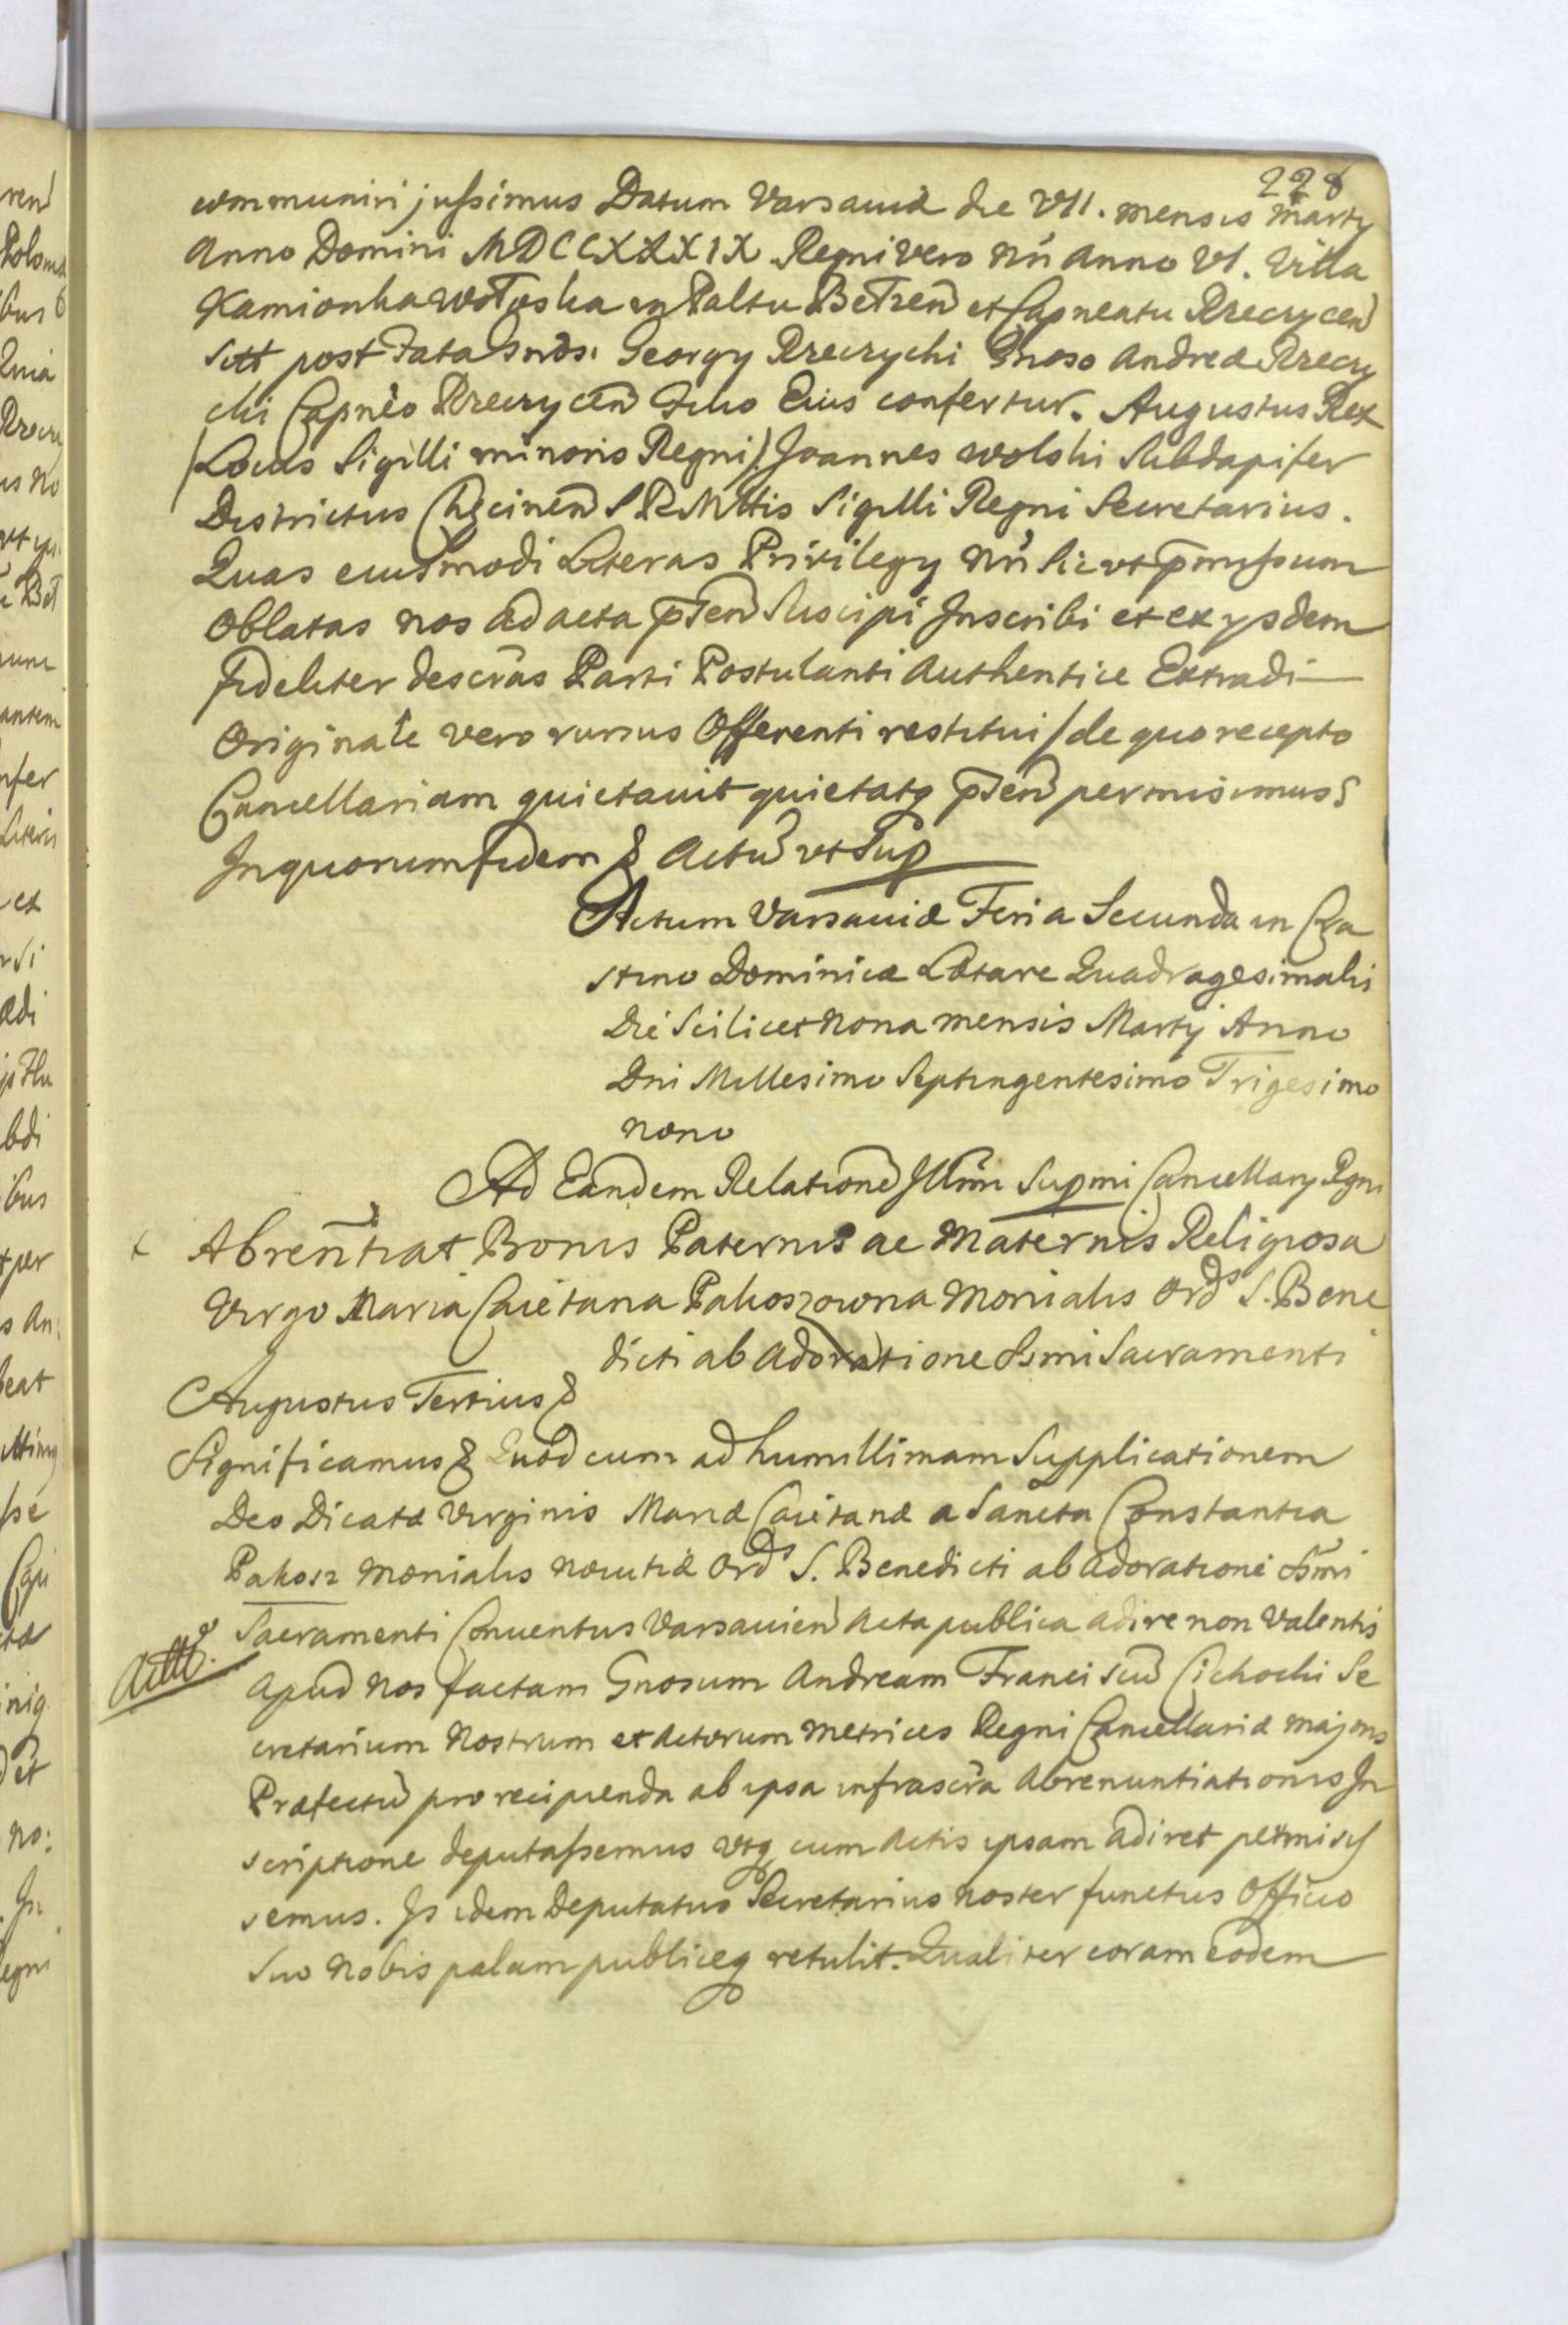 228
communiri jussimus Datum Varsaviæ die VII. mensis Marty
Anno Domini MDCCXXXIX Regni vero nri Anno VI. Villa
Kamionka Wołoska in Paltu Bełzen et Capneatu Rzeczycen
sitt post fata Georgy Rzeczychi Gnoso Andreæ Rzeczy
cki Capneo Rzeczycen Filio Eius confertur. Augustus Rex
(Locus Sigilli minoris Regni) Joannes Wolski Subdapifer
Districtus Checinen S R Mttis Sigilli Regni Secretarius.
Quas eiusmodi Literas Privilegy nri sic ut pmissum
Oblatas nos ad acta pten suscipi Inscribi et ex ysdem
fideliter descras Parti Postulanti Authentice Extradi
Originale vero rursus Offerenti restitui / de quo recepto
Cancellariam quietavit quietatq pten permisimus
In quorum fidem & Actu ut Sup
Actum Varsaviæ Feria Secunda in Cra
stino Dominicæ Lætare Quadragesimalis
Die Scilicet Nona mensis Marty Anno
Dni Millesimo Septingentesimo Trigesimo
nono
Ad Eandem Relatione Illmi Supmi Cancellary Rgni
Abrentiat Bonis Paternis ac Maternis Religiosa
Virgo Maria Caietana Pakoszowna Monialis Ords S. Bene
dicti ab Adoratione Ssmi Sacramenti
Augustus Tertius &
Significamus & Quod cum ad humillimam Supplicationem
Deo Dicatæ Virginis Mariæ Caietanæ a Sancta Constantia
Pakosz Monialis Ords S. Benedicti ab Adoratione Ssmi
Sacramenti Conventus Varsavien Acta publica adire non Valentis
apud nos factam Gnosum Andream Franciscu Cichocki Se
cretarium Nostrum et Actorum Metrices Regni Cancellariæ majoris
Præfectu pro recipienda ab ipsa infrascra Abrenuntiationis In
scriptione deputassemus utq cum Actis ipsam adiret permisis
semus. Is idem Deputatus Secretarius noster functus Officio
suo Nobis palam publiceq retulit. Qualiter coram eodem